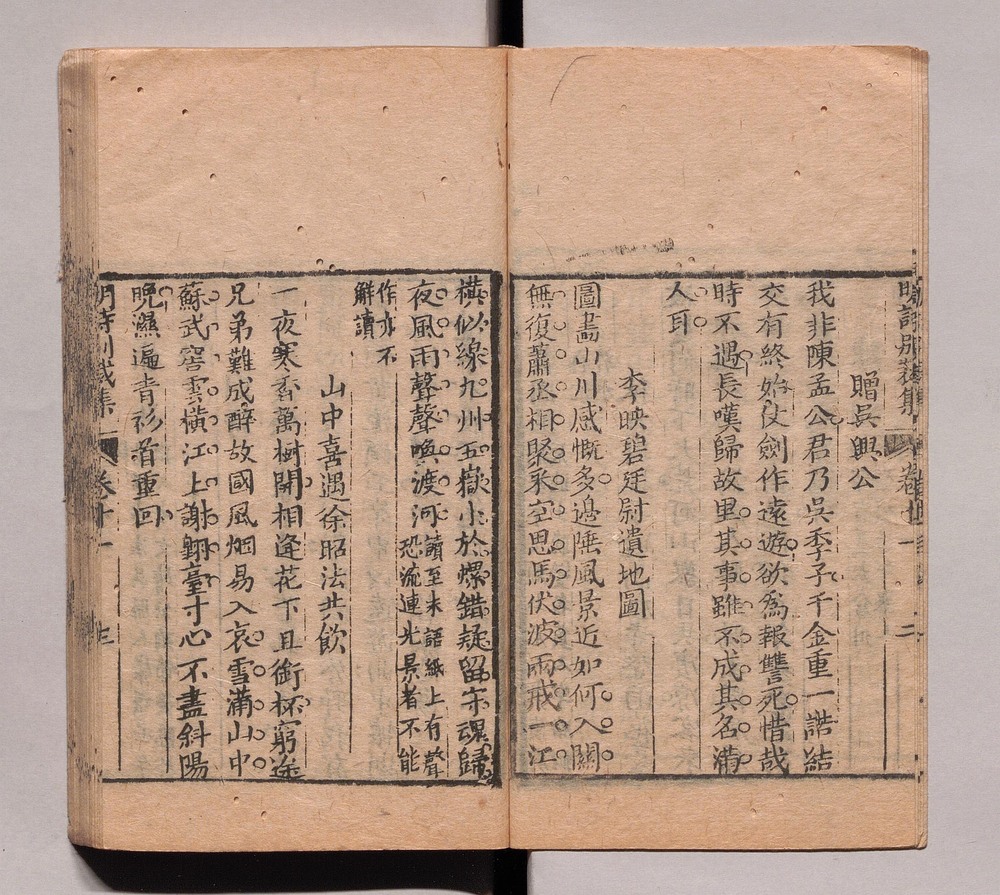 贈吳興公
我非陳孟公君乃吳季子千金重一諾結
交有終始仗劍作遠遊欲爲報讐死惜哉
時不遇長嘆歸故里其事雖不成其名滿
人耳
李映碧廷尉遺地圖
圖畵山川感慨多邊陲風景近如何入關
無復蕭丞相聚米空思馬伏波兩戒一江
橫似線九州五嶽小於螺錯疑留守魂歸
夜風雨聲聲喚渡河讀至末語紙上有聲
恐流連光景者不能
作亦不
解讀
山中喜遇徐昭法共飲
一夜寒香萬樹開相逢花下且銜杯窮途
兄弟難成醉故國風烟易入哀雪滿山中
蘇武窖雲橫江上謝翱臺寸心不盡斜陽
晚濕遍青衫首重回
卷十一
三